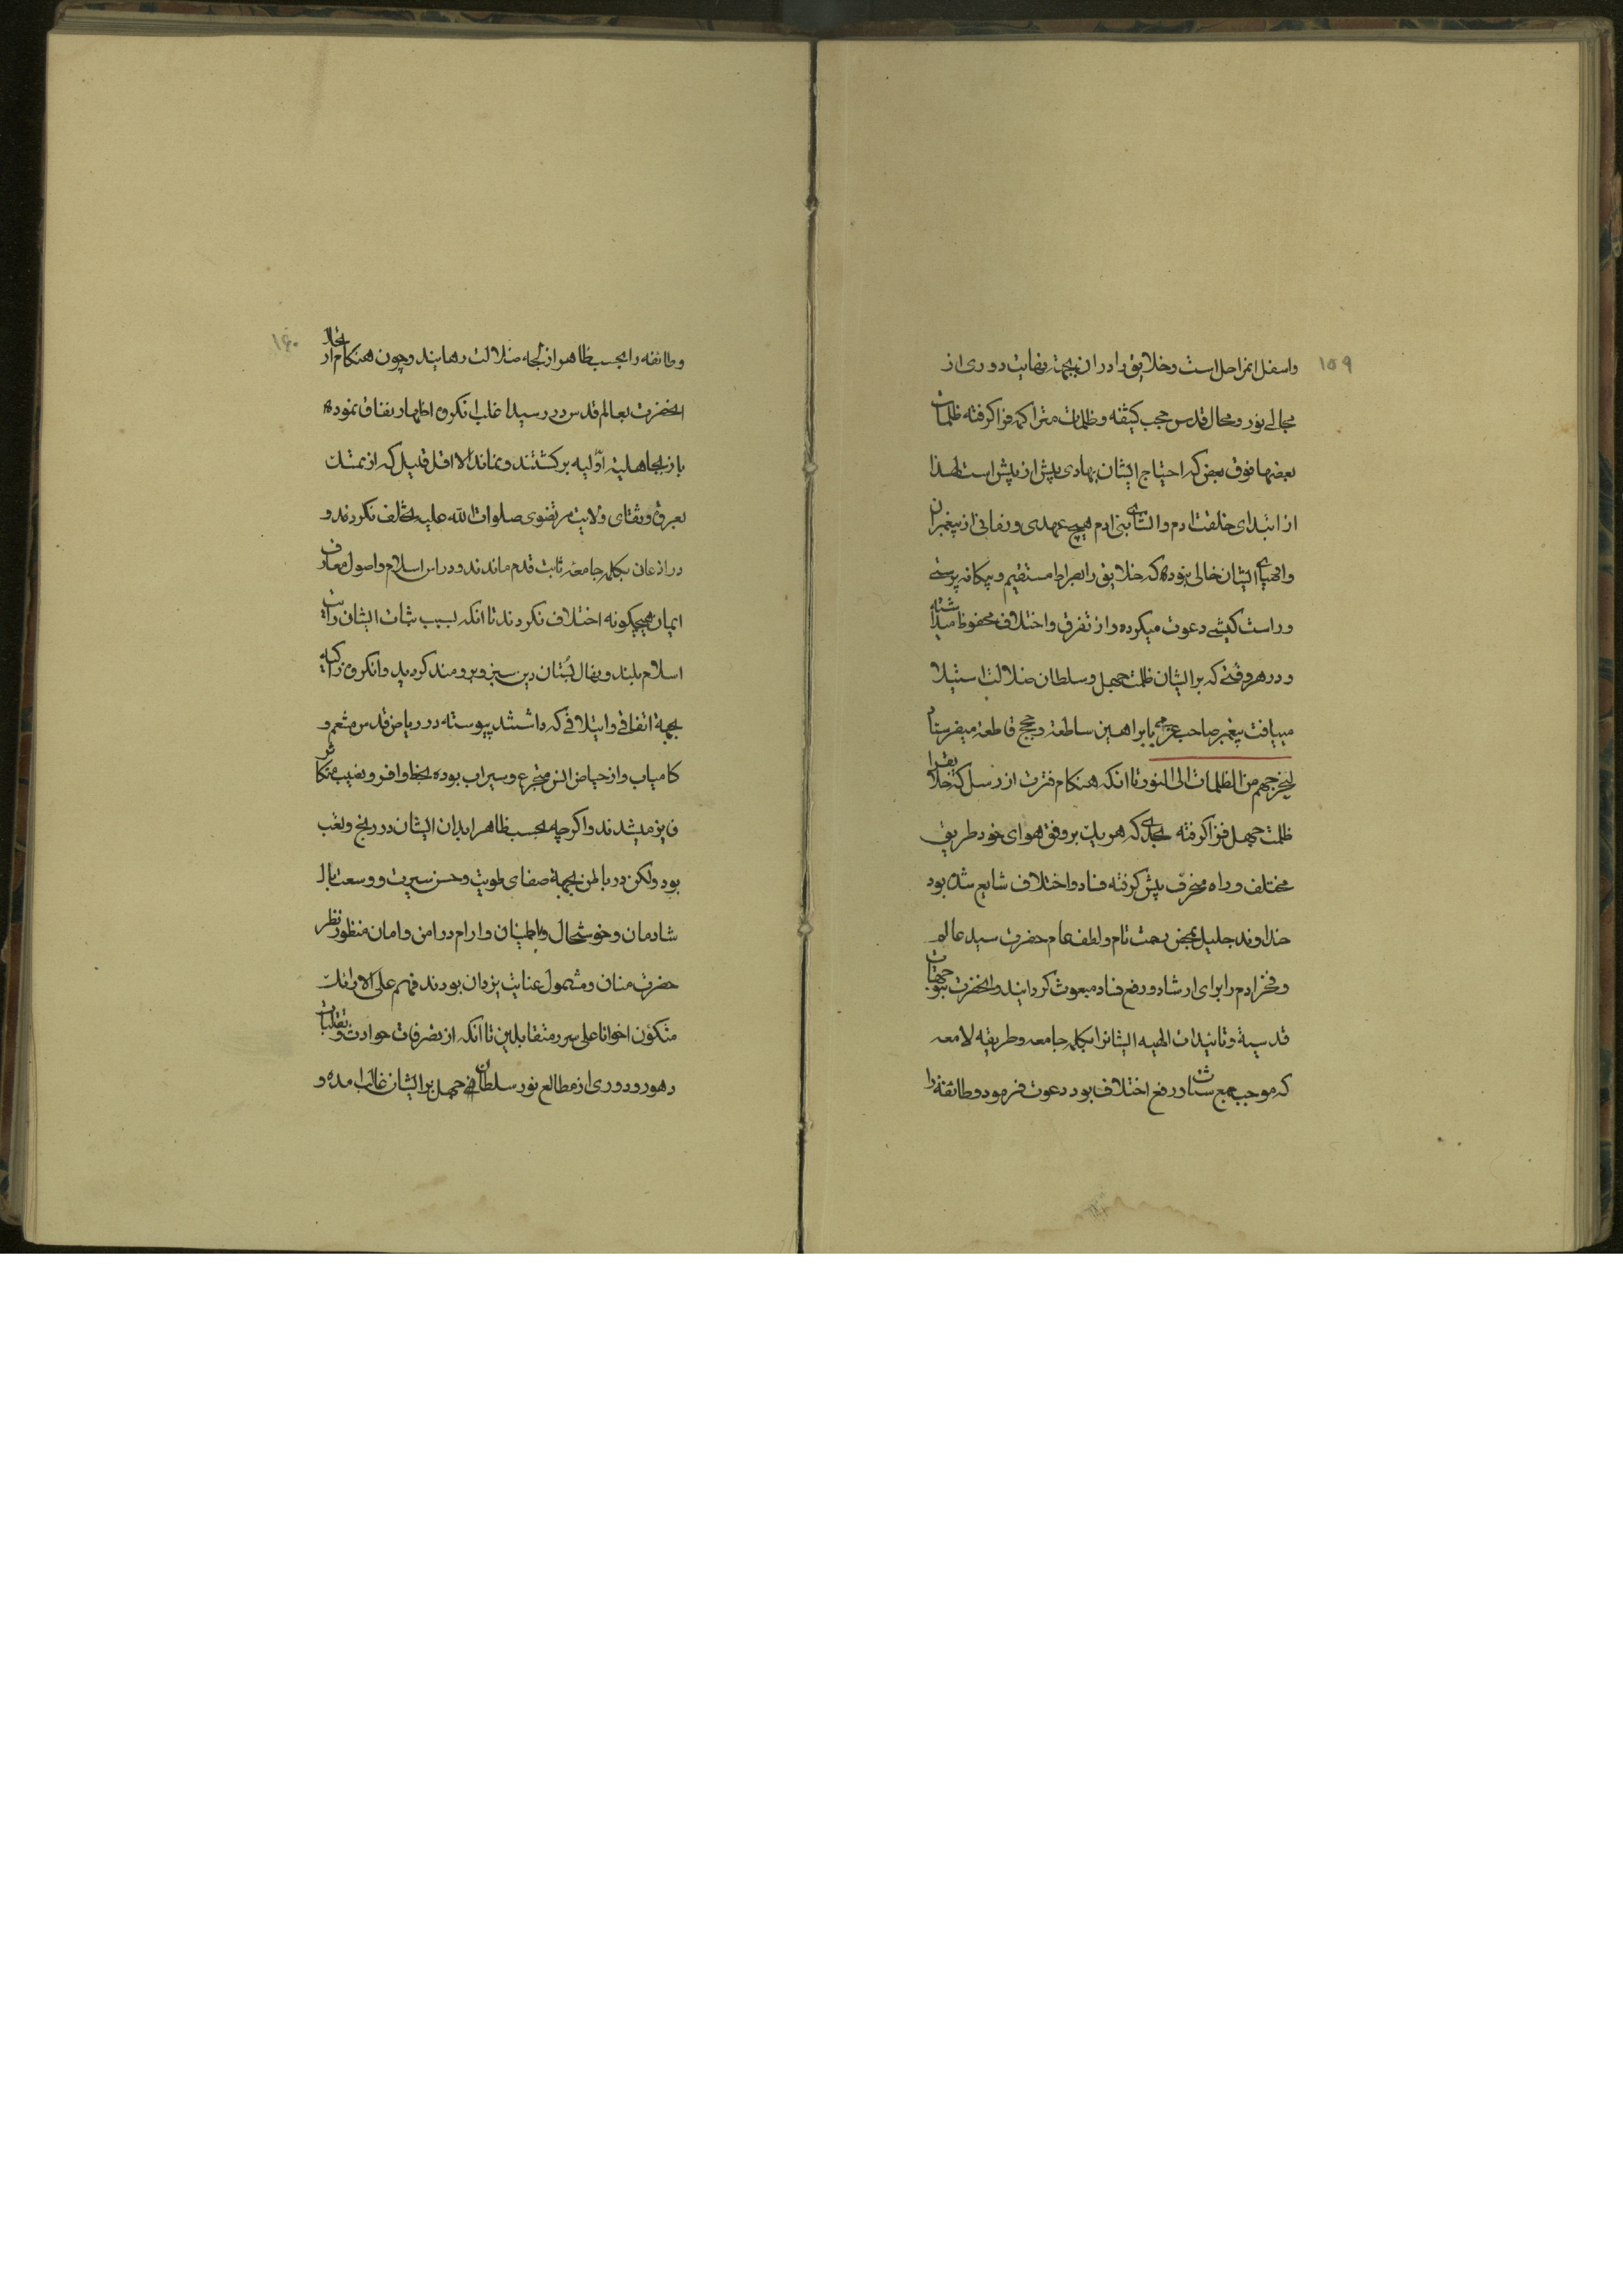 ۱۵۹
واسفل انمراحل است وخلایق را دران بجهت نهایت دوری از
مجالی نور ومحال قدس حجب کثیفه وظلمات متراکمه فرا کرفته ظلمات
بعضها فوق بعض که احتیاج ایشان بهادی بیش از پیش است لهذا
از ابتدای خلقت ادم وانشای بنی ادم هیچ عهدی وزمانی از پیغمبران
واوصیای ایشان خالی نبوده که خلایق را بصراط مستقیم ویکانه پرستی
وراست کیشی دعوت میکرده واز تفرق واختلاف محفوظ میداشته
ودر هر وقتی که بر ایشان ظلمت جهل وسلطان ضلالت استیلا
مییافت پیغمبر صاحب عزمی با براهین ساطعه وحجج قاطعه میفرستاد
لیخرجهم من الظلمات الی النور تا انکه هنکام فترت از رسل که خلایق را
ظلمت جهل فرا کرفته بحدی که هر یک بر وفق هوای خود طریق
مختلف وراه منحرف پیش کرفته فساد واختلاف شایع شده بود
خداوند جلیل بمحض رحمت تام ولطف عام حضرت سید عالم
وفخر ادم را برای ارشاد ورفع فساد مبعوث کردانید وانحضرت بتوجهات
قدسیه وتائیدات الهیه ایشانرا بکلمه جامعه وطریقه لامعه
که موجب جمع شتات ورفع اختلاف بود دعوت فرمود وطائفه را
۱۶۰
وطائفه را بحسب ظاهر از لجه ضلالت رهانید وچون هنکام ارتحال
انحضرت بعالم قدس در رسید اغلب انکروه اظهار نفاق نموده
باز بجاهلیة اولیه برکشتند ونماند الا اقل قلیل که از تمسک
بعروه وثقای ولایت مرتضوی صلوات الله علیه تخلف نکردند و
در اذعان بکلمه جامعه ثابت قدم ماندند ودر اس اسلام واصول معارف
ایمان هیچکونه اختلاف نکردند تا انکه بسبب ثبات ایشان رایت
اسلام بلند ونهال بُستان دین سبز وبرومند کردید وانکروه زاکیه
بجهة اتفاقی وایتلافی که داشتند پیوسته در ریاض قدس متنعم و
کامیاب واز حیاض انس متجرع وسیراب بوده بحظ وافر ونصیب متکاثر
فایز میشدند واکرچه بحسب ظاهر ابدان ایشان در رنج وتعب
بود ولکن در باطن بجهة صفای طویت وحسن سیرت ووسعت بال
شادمان وخوشحال وباطمینان وارام در امن وامان منظور نظر
حضرت منان ومشمول عنایت یزدان بودند فهم علی الارائک
متکؤن اخوانا علی سرر متقابلین تا انکه از تصرفات حوادث وتقلبات
دهور ودوری از مطالع نور سلطان جهل بر ایشان غالب امده و